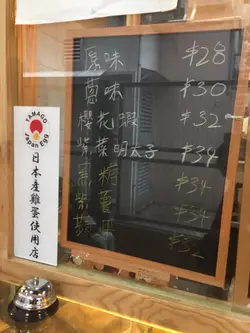 原味 $28
蔥味 $30
櫻花蝦 $32
紫葉明太子 $34
$34
$34
$32
TAMAGO
Japan Egg
日本産雞蛋使用店